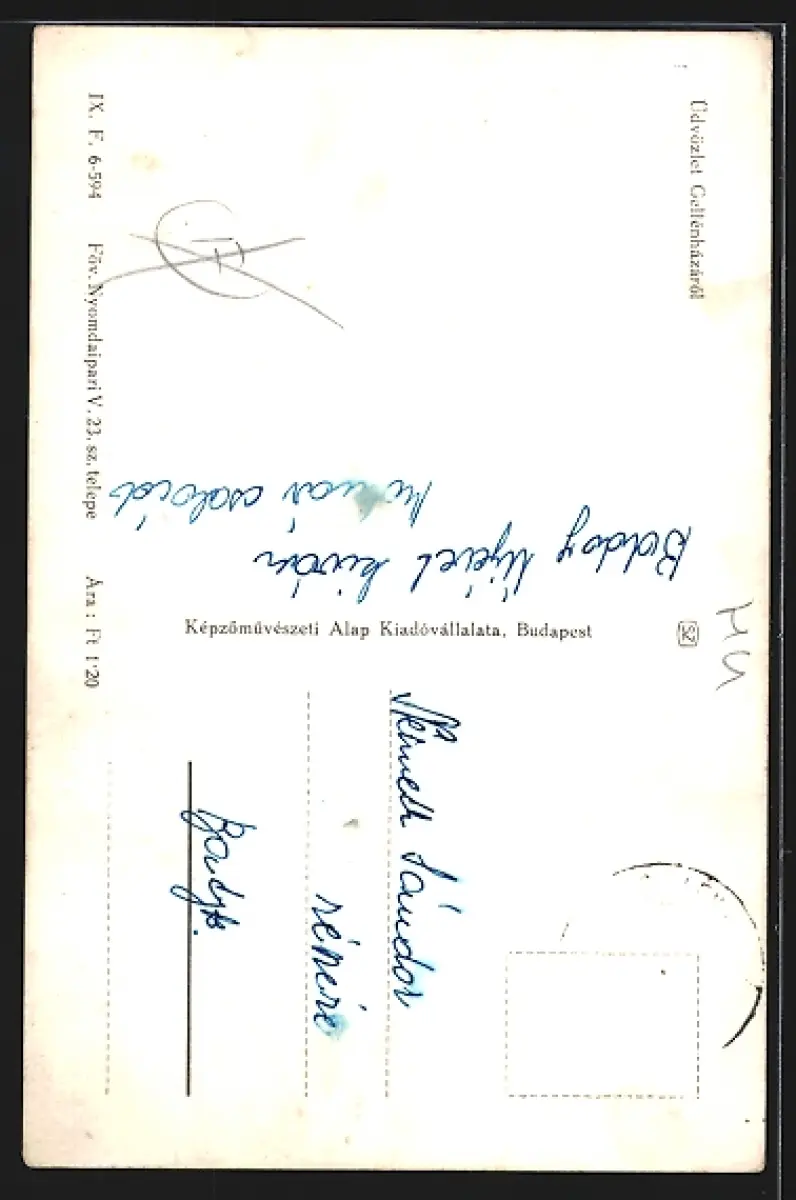 Üdvözlet Gellénházáról
Boldog Újévet kíván
család
Képzőművészeti Alap Kiadóvállalata, Budapest
K
Németh Sándor
részére
IX. F. 6-594 Főv. Nyomdaipari V. 23. sz. telepe Ára: Ft 1'20